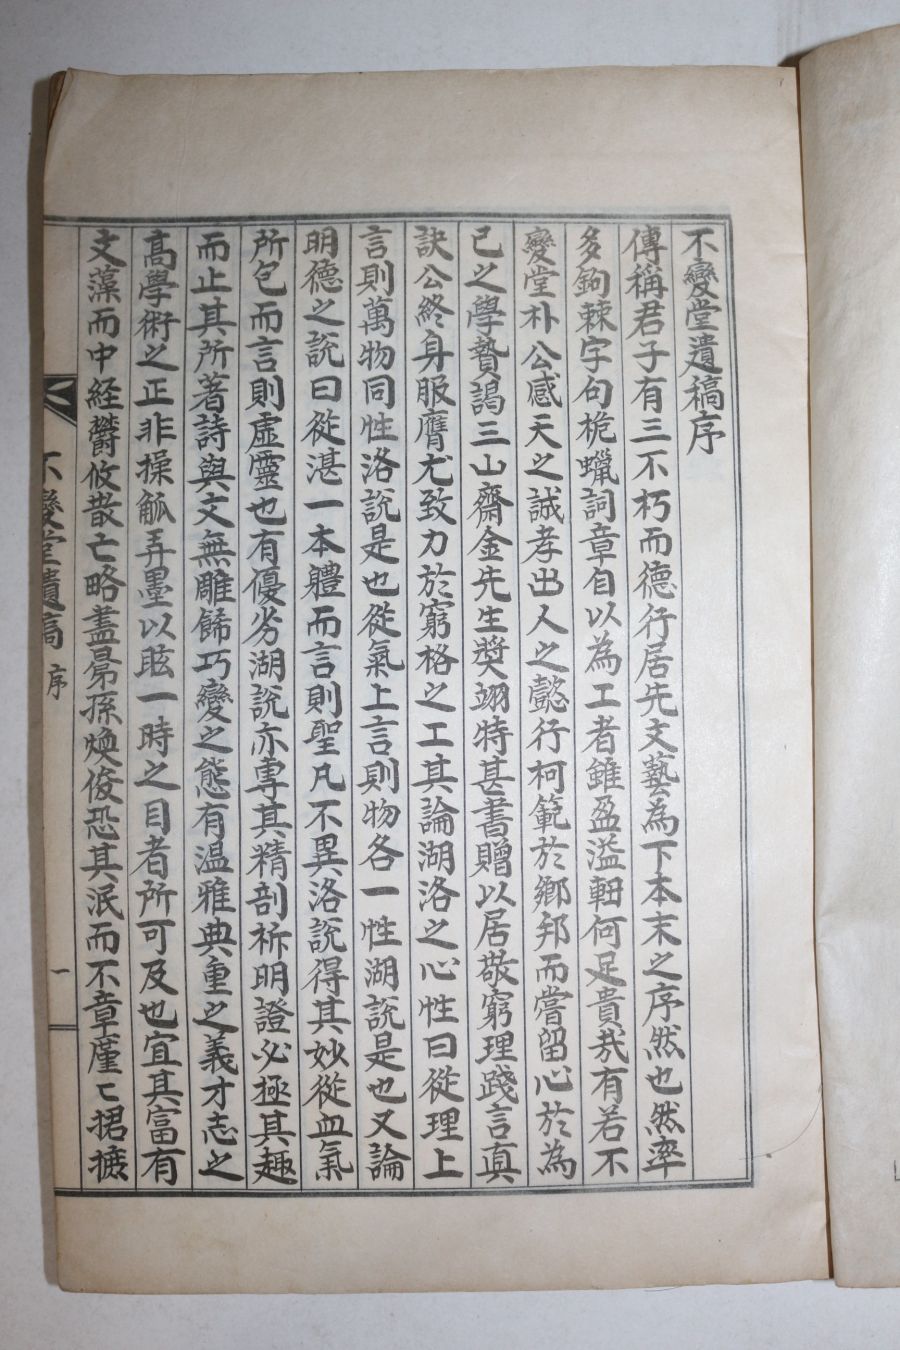 不變堂遺稿序
傳稱君子有三不朽而德行居先文藝為下本末之序然也然率
多鉤棘字句桅蠟詞章自以為工者雖盈溢軒何足貴哉有若不
變堂朴公感天之誠孝出人之懿行柯範於鄉邦而嘗留心於為
己之學贄謁三山齋金先生奬翊特甚書贈以居敬窮理踐言眞
訣公終身服膺尤致力於窮格之工其論湖洛之心性曰從理上
言則萬物同性洛說是也從氣上言則物各一性湖說是也又論
明德之說曰從湛一本體而言則聖凡不異洛說得其妙從血氣
所包而言則虛靈也有優劣湖說亦專其精剖析明證必極其趣
而止其所著詩與文無雕餙巧變之態有温雅典重之義才志之
高學術之正非操觚弄墨以眩一時之目者所可及也宜其富有
文藻而中経欝攸散亡略盡曷孫煥俊恐其泯而不章廑〻捃摭
不變堂遺稿 序 一